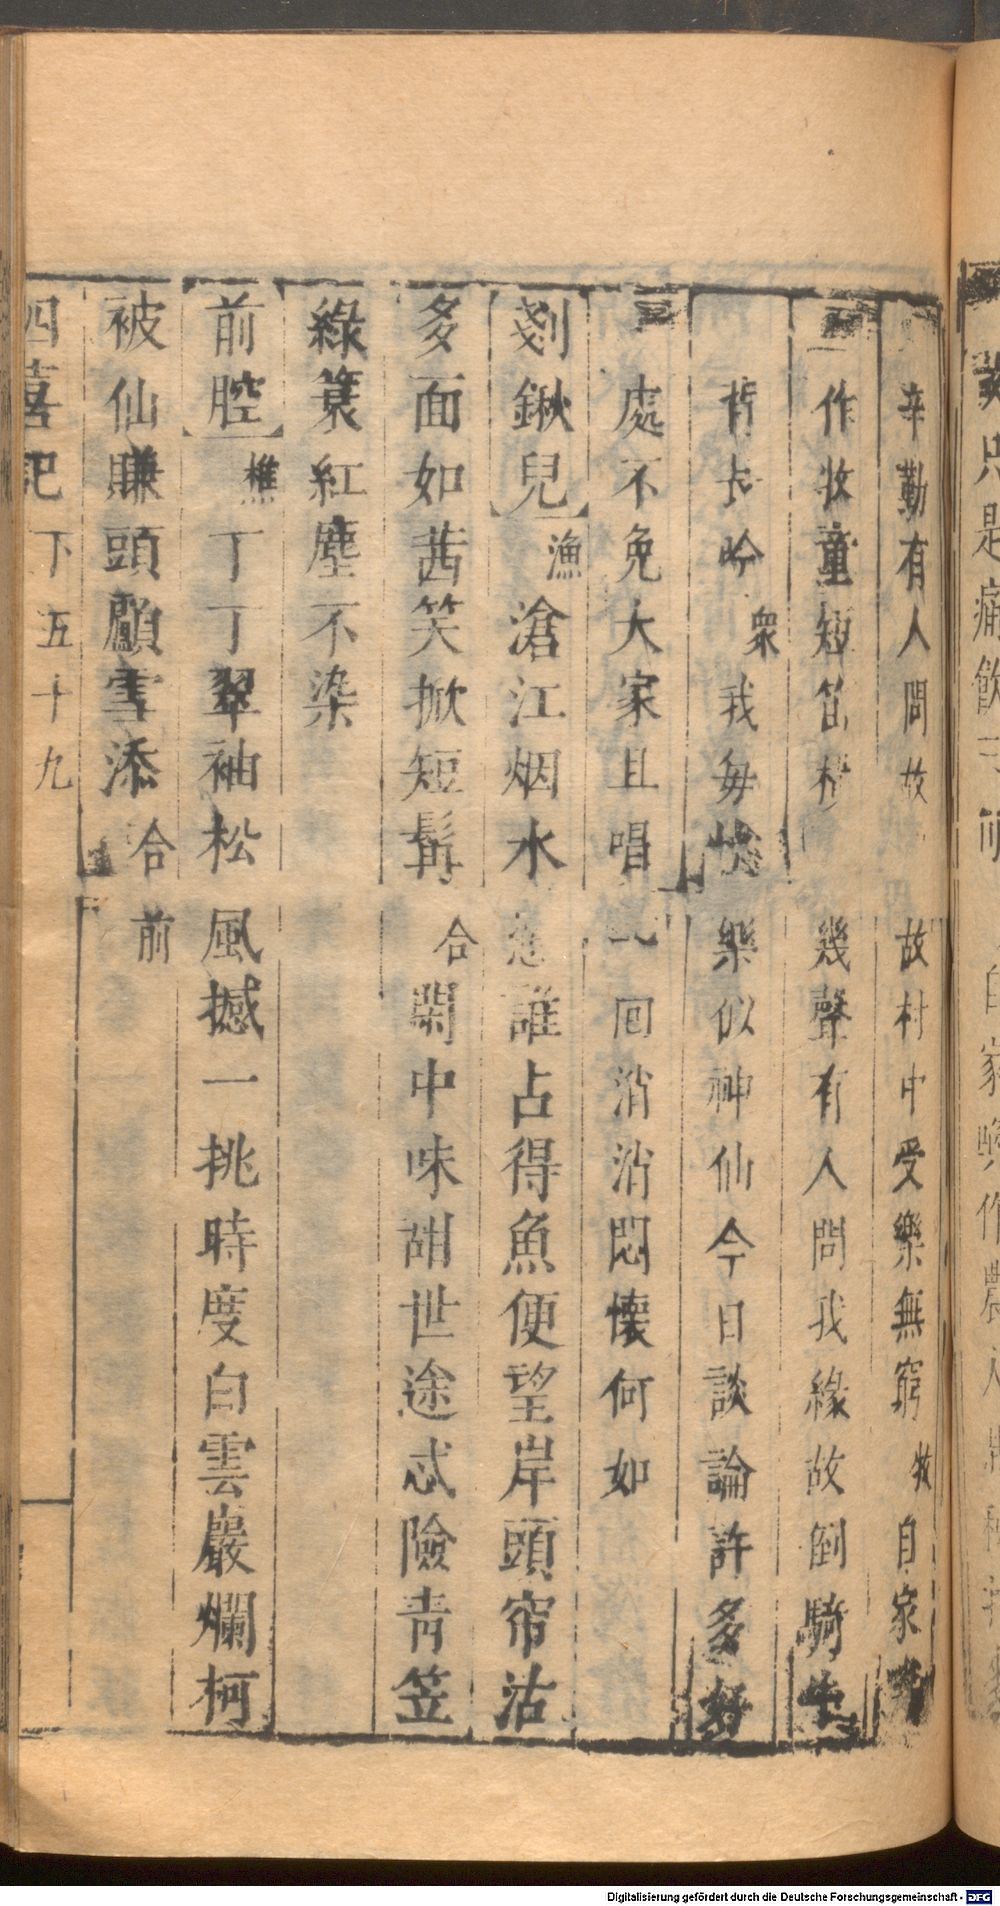 是痛飲
自家喚作農
辛勤有人問故故村中受樂無窮牧自家
作牧童短笛幾聲有人問我緣故倒騎牛
背長吟眾我每快樂似神仙今日談論許多好
處不免大家且唱回消消悶懷何如
剗鍬兒漁滄江烟水誰占得魚便望岸頭帘沽
多面如茜笑掀短髯合閑中味甜世途忒險青笠
綠蓑紅塵不染
前腔樵丁丁翠袖松風撼一挑時度白雲巖爛柯
被仙賺頭顱雪添合前
四喜記下五十九
Digitalisierung gefördert durch die Deutsche Forschungsgemeinschaft - DFG